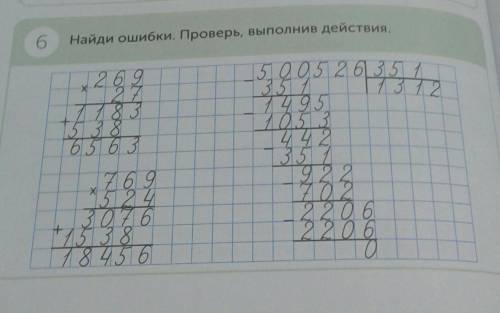 6 Найди ошибки. Проверь, выполнив действия.
× 269
27
+ 1183
538
6563
× 769
524
+ 3076
1538
18456
- 500526 351
351 1312
- 1495
1053
- 442
351
- 922
702
- 2206
2206
0